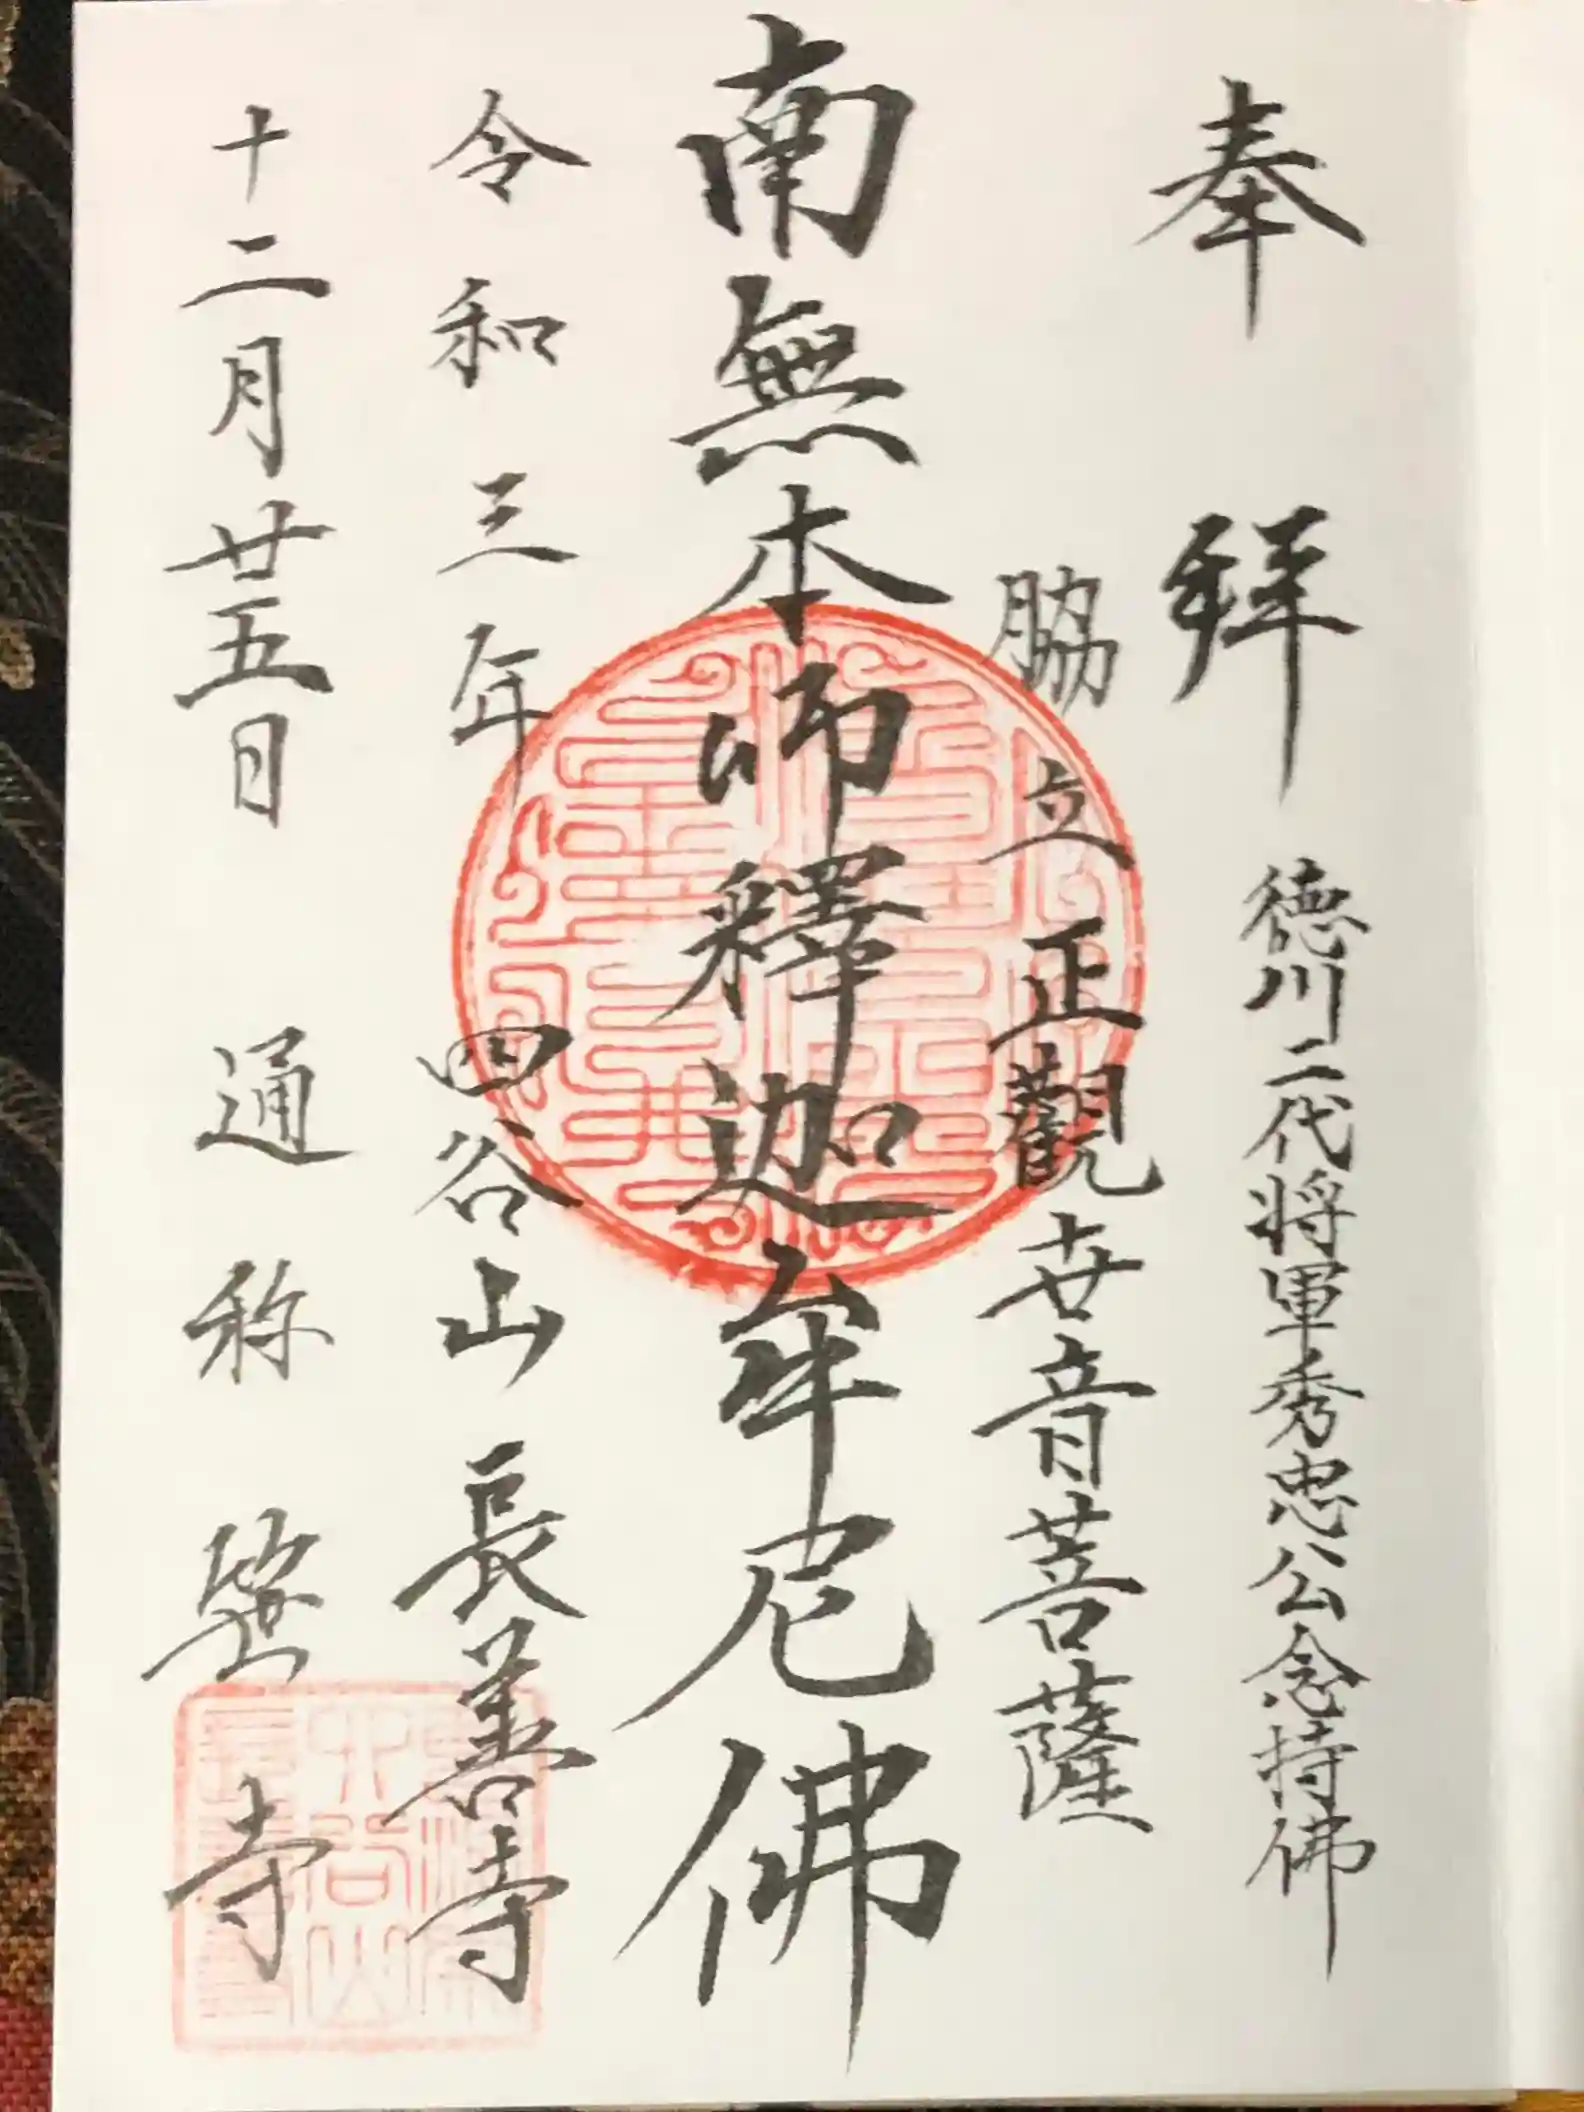 奉拜
徳川二代将軍秀忠公念持佛
脇立正觀世音菩薩
南無本師釋迦牟尼佛
令和三年
四谷山長善寺
十二月廿五日
通称 笹寺